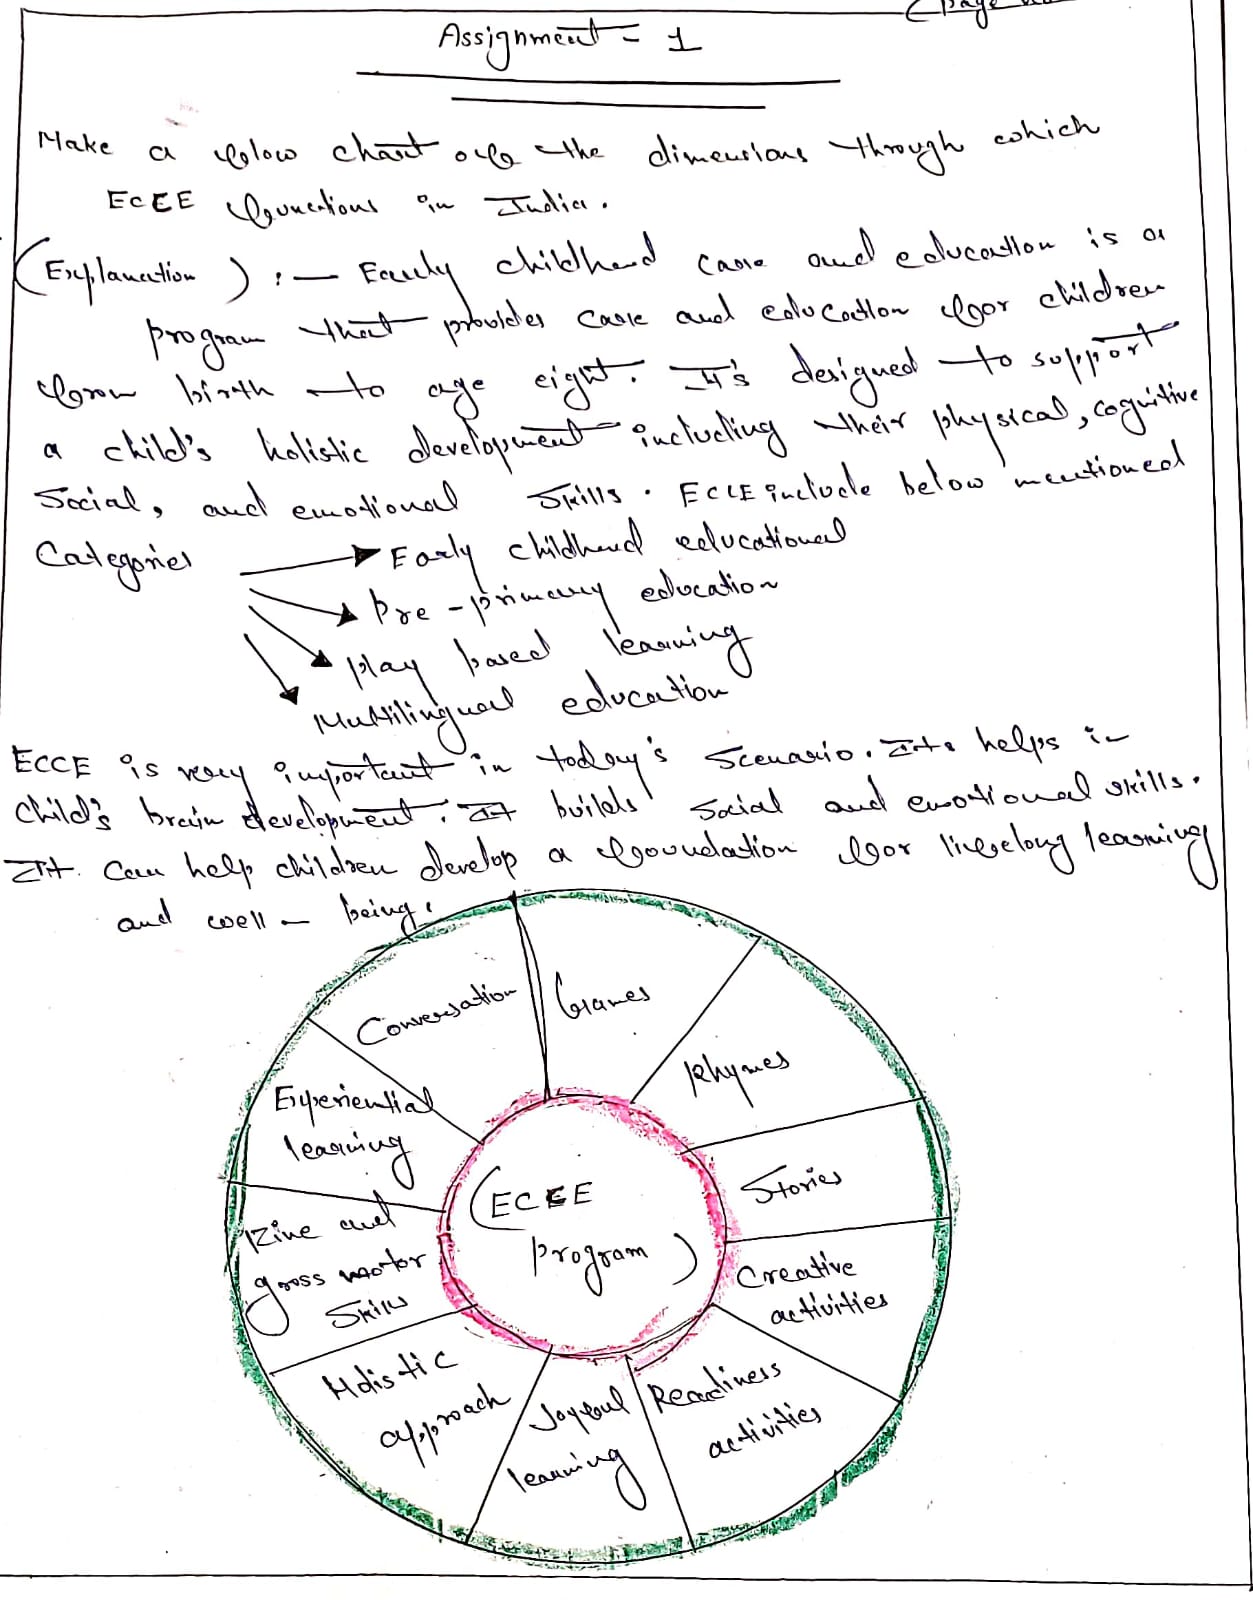 (Page
Assignment - 1
Make a flow chart of the dimensions through which
ECEE functions in India.
(Explanation) :— Early childhood care and education is a
program that provides care and education for children
from birth to age eight. It's designed to support
a child's holistic development including their physical, cognitive
Social, and emotional Skills. ECCE include below mentioned
Categories → Early childhood educational
→ Pre-primary education
→ Play based learning
→ Multilingual education
ECCE is very important in today's Scenario. It helps in
Child's brain development. It builds social and emotional skills.
It can help children develop a foundation for lifelong learning
and well - being.
Conversation
Games
Rhymes
Experiential
learning
Stories
(ECEE
program)
Fine and
gross motor
Skills
Creative
activities
Holistic
approach
Joyful
learning
Readiness
activities